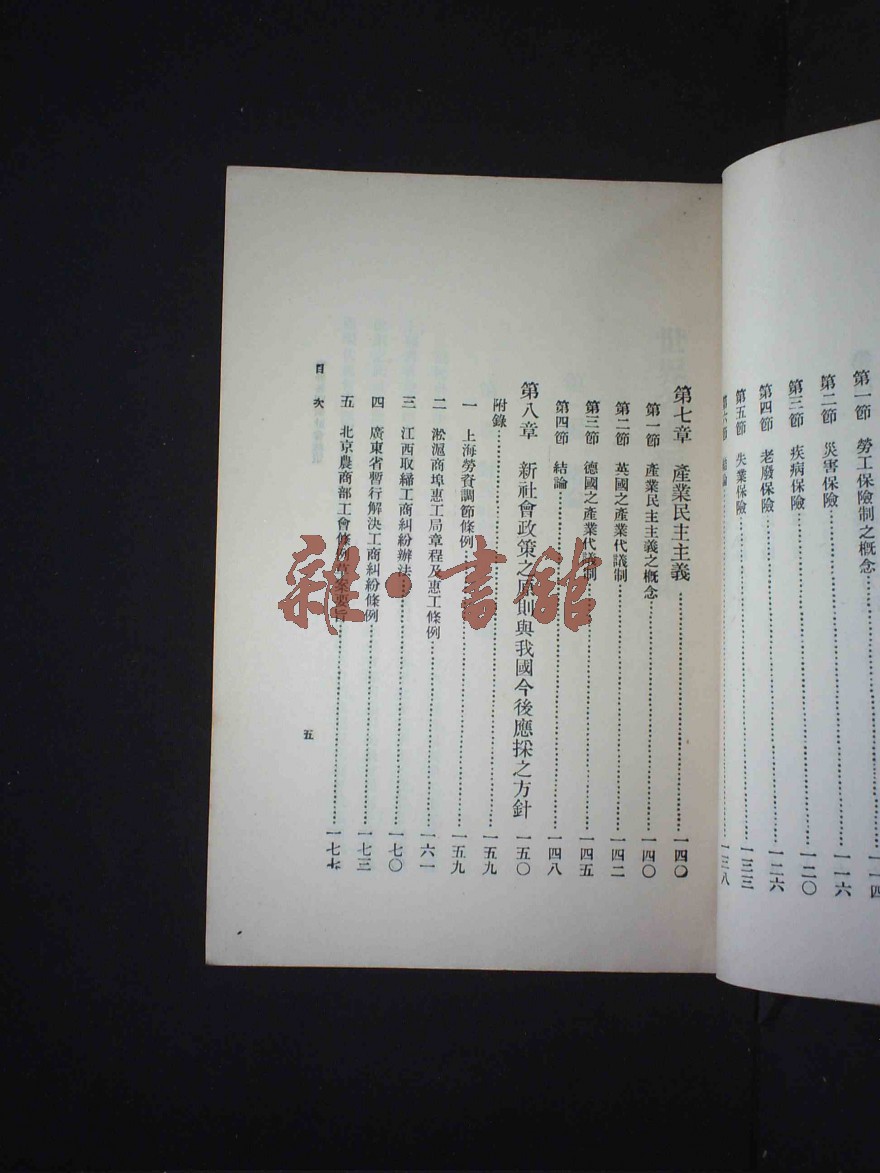 第一節　勞工保險制之概念………一一四
第二節　災害保險………一一六
第三節　疾病保險………一二〇
第四節　老廢保險………一二六
第五節　失業保險………一三三
第六節　結論………一三八
第七章　產業民主主義………一四〇
第一節　產業民主主義之概念………一四〇
第二節　英國之產業代議制………一四二
第三節　德國之產業代議制………一四五
第四節　結論………一四八
第八章　新社會政策之原則與我國今後應採之方針　一五〇
附錄………一五九
一　上海勞資調節條例………一五九
二　淞滬商埠惠工局章程及惠工條例………一六一
三　江西取締工商糾紛辦法………一七〇
四　廣東省暫行解決工商糾紛條例………一七三
五　北京農商部工會條例草案要旨………一七七
目　次
五
雜·書館